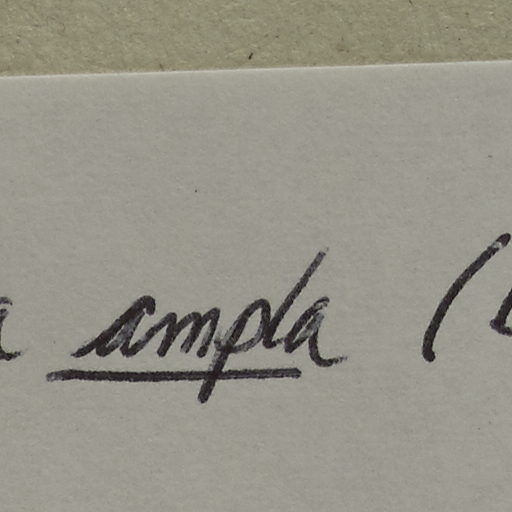 a ampla (